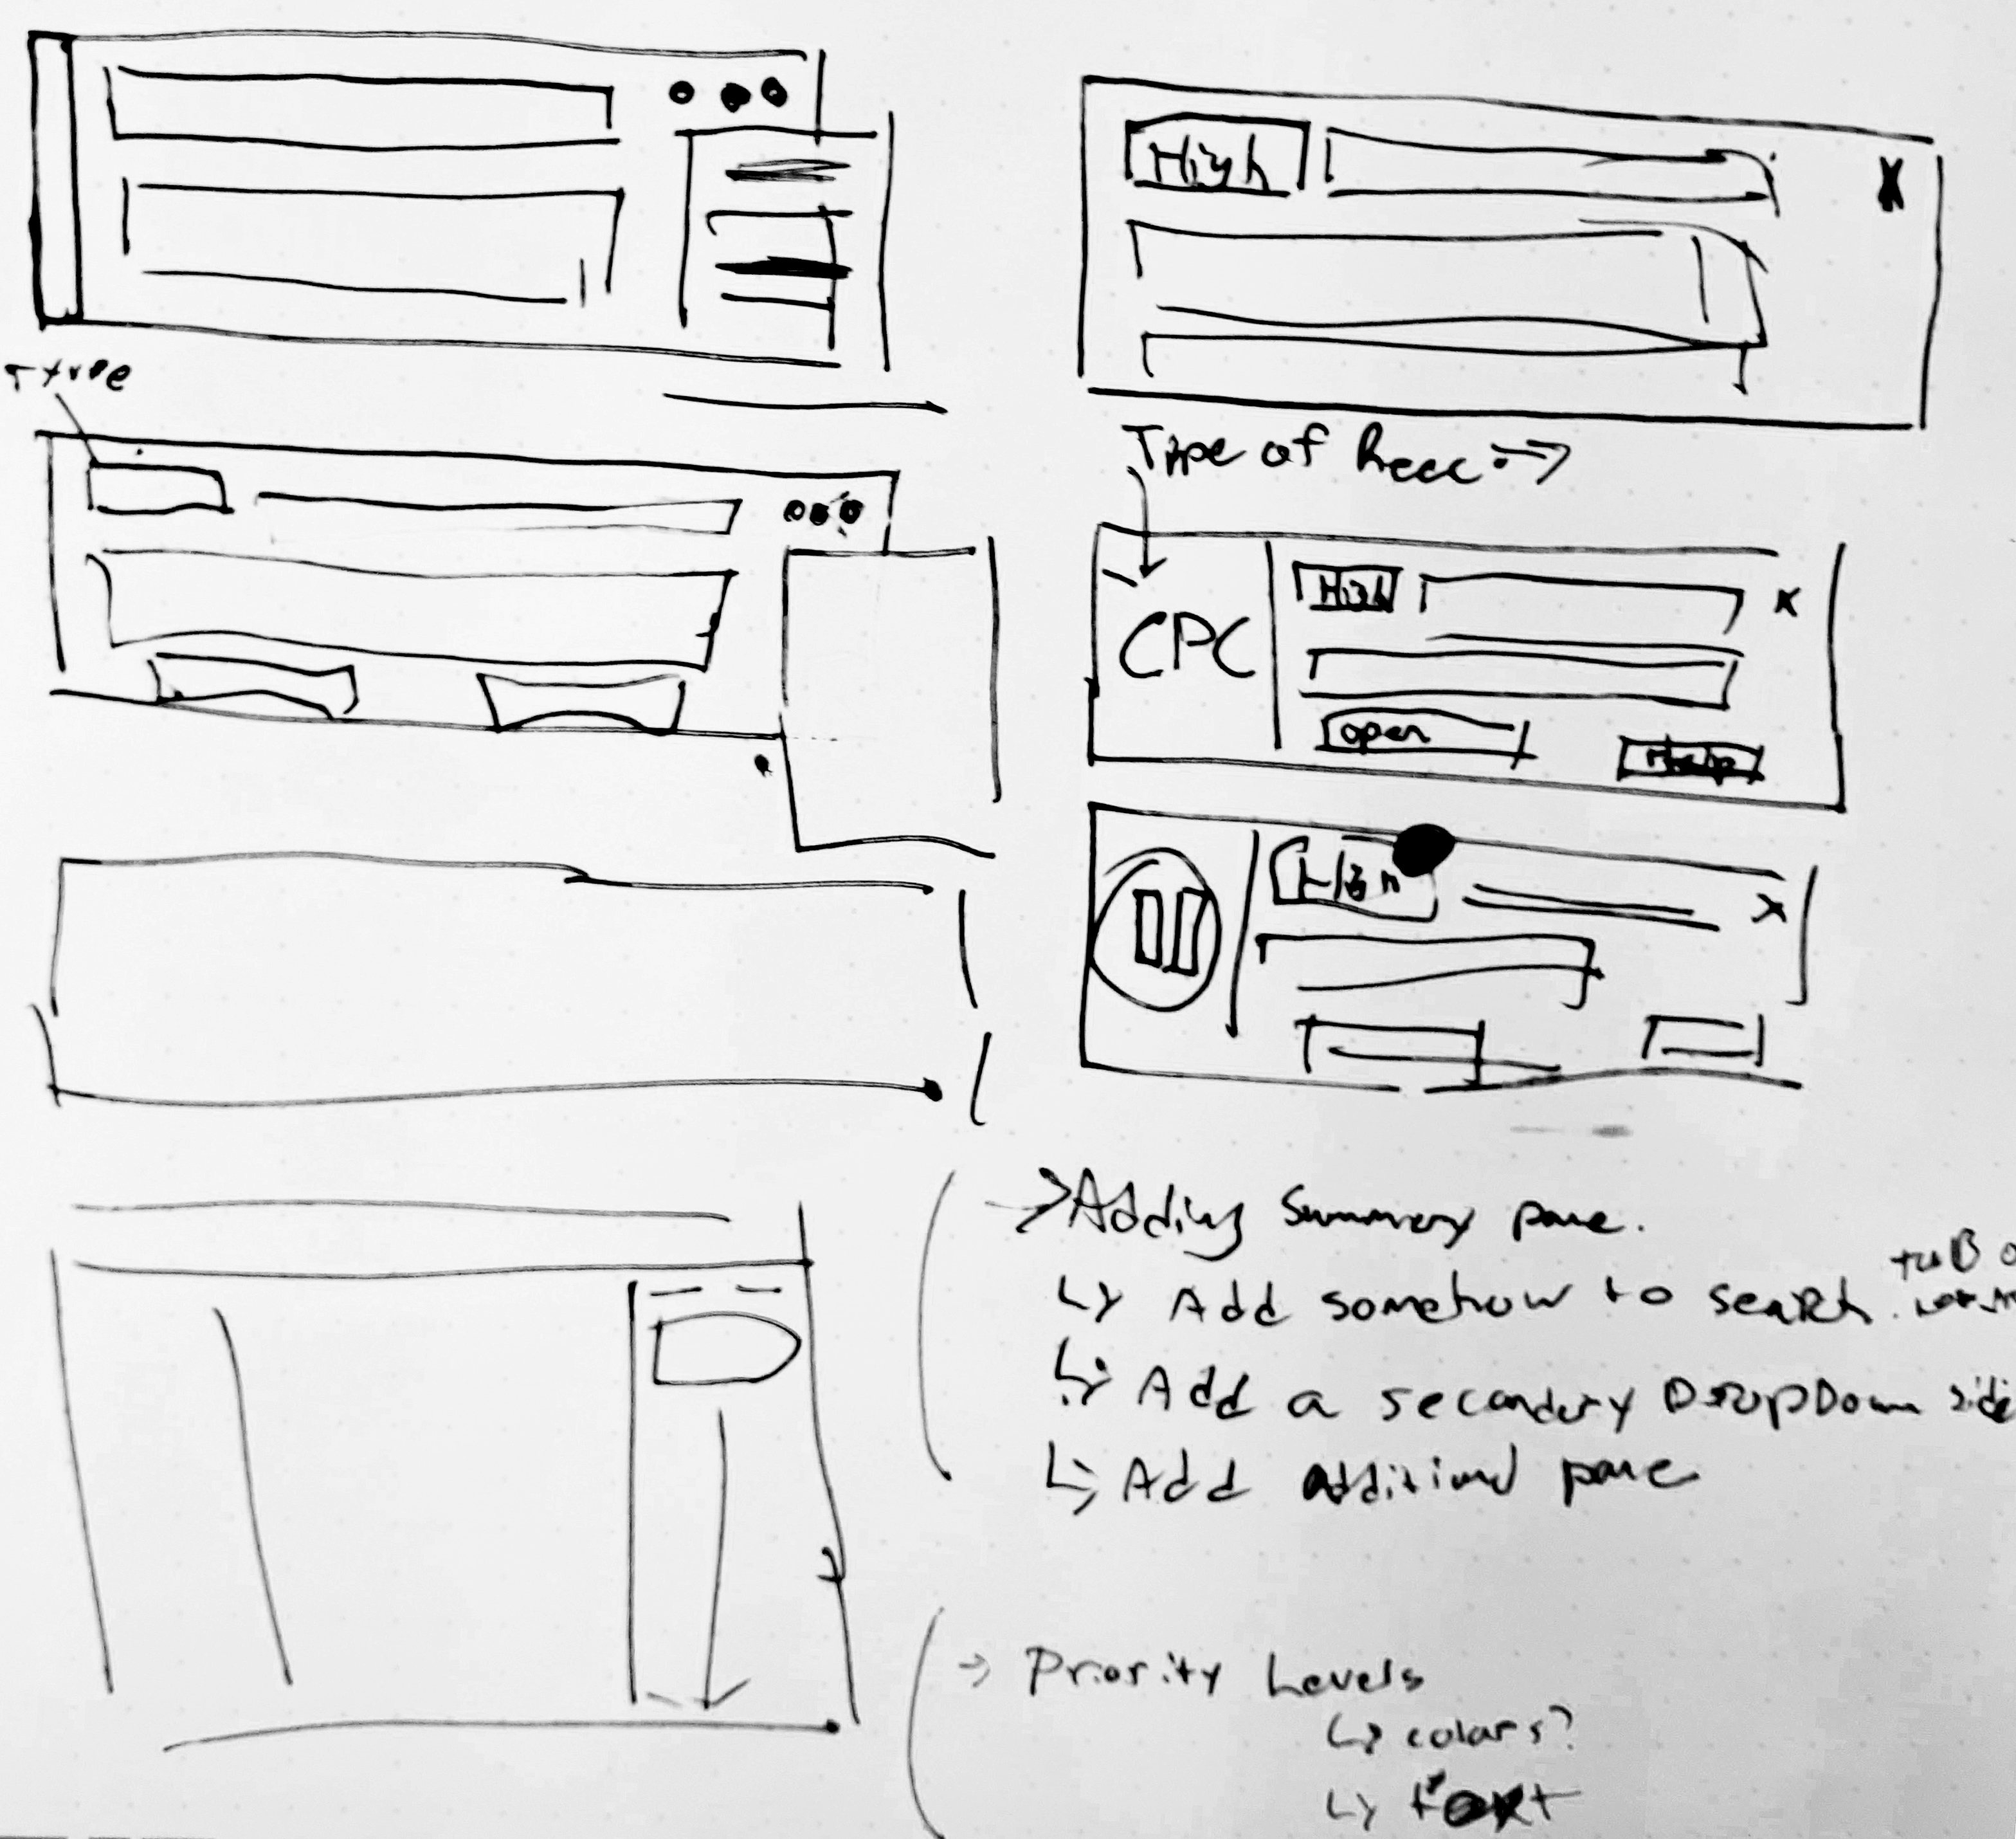 Type
High
x
Type of Recc →
CPC
High
x
open
Help
High
x
→ Adding Summary pane.
↳ Add somehow to search.
↳ Add a secondary DropDown side
↳ Add additional pane
→ Priority Levels
↳ colors?
↳ text